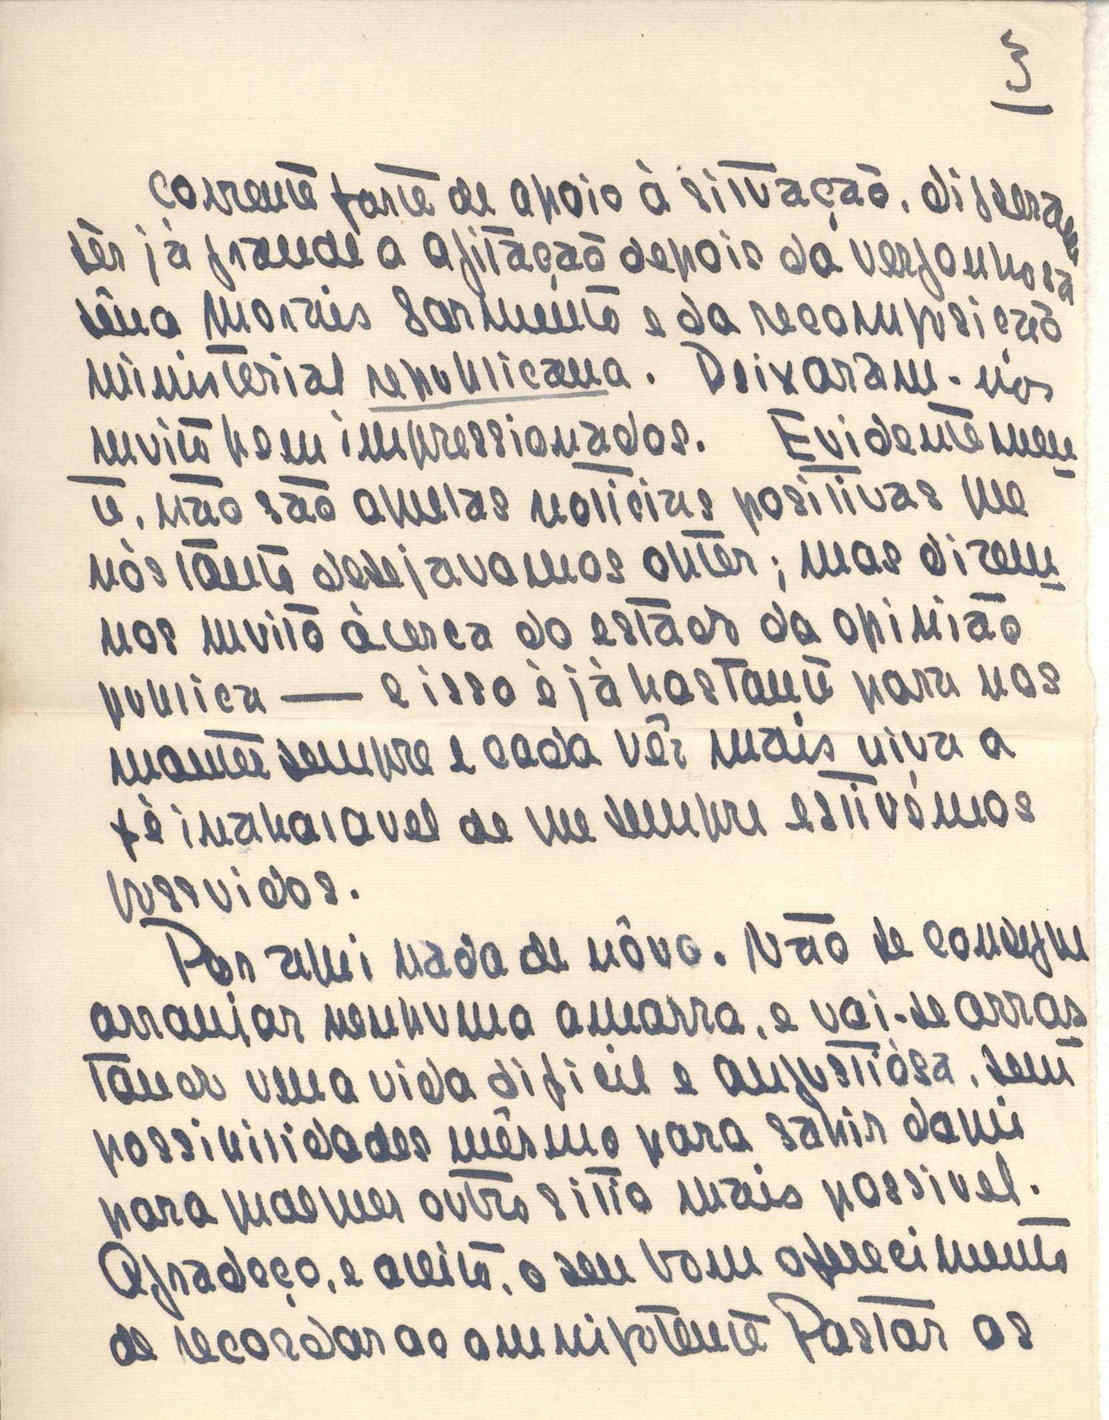 3
corrente forte de apoio à situação, disseram
sêr já grande a agitação depois da vergonhosa
sêna Morais Sarmento e da recomposição
ministerial republicana. Deixaram-nos
muito bem impressionados. Evidentemen
te, não são aquelas noticias positivas que
nòs tanto desejavamos obter; mas dizem
nos muito àcerca do estado da opinião
publica — e isso è já bastante para nos
mantêr sempre e cada vêz mais viva a
fè inabalavel de que sempre estivémos
possuidos.
Por aqui nada de nôvo. Não se consegue
arranjar nenhuma amarra, e vai-se arras
tando uma vida dificil e angustiòsa, sem
possibilidades mêsmo para sahir daqui
para qualquer outro sitio mais possivel.
Agradeço, e aceito, o seu bom oferecimento
de recordar ao omnipotente Pastôr os